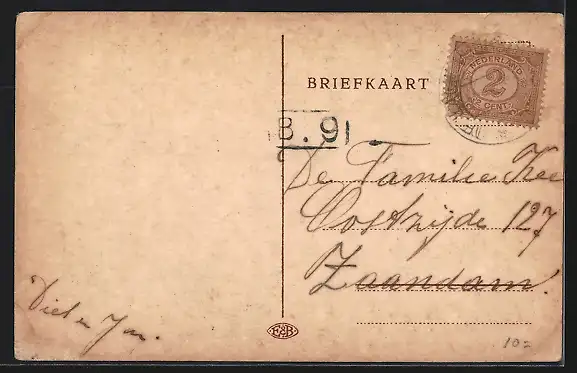 BRIEFKAART
NEDERLAND
2
2 CENT
B.91
De Familie Kee
Oostzijde 127
Zaandam.
Diet en Jan.
E&B
10=